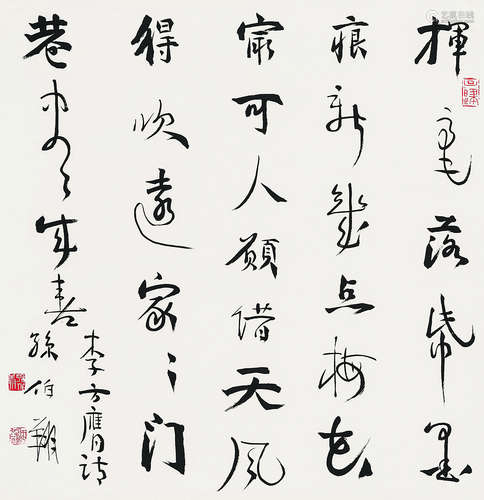 揮毫落紙墨
痕新幾点梅花
冣可人願借天风
得吹遠家〻门
巷尽成春
李方膺詩
孫伯翔